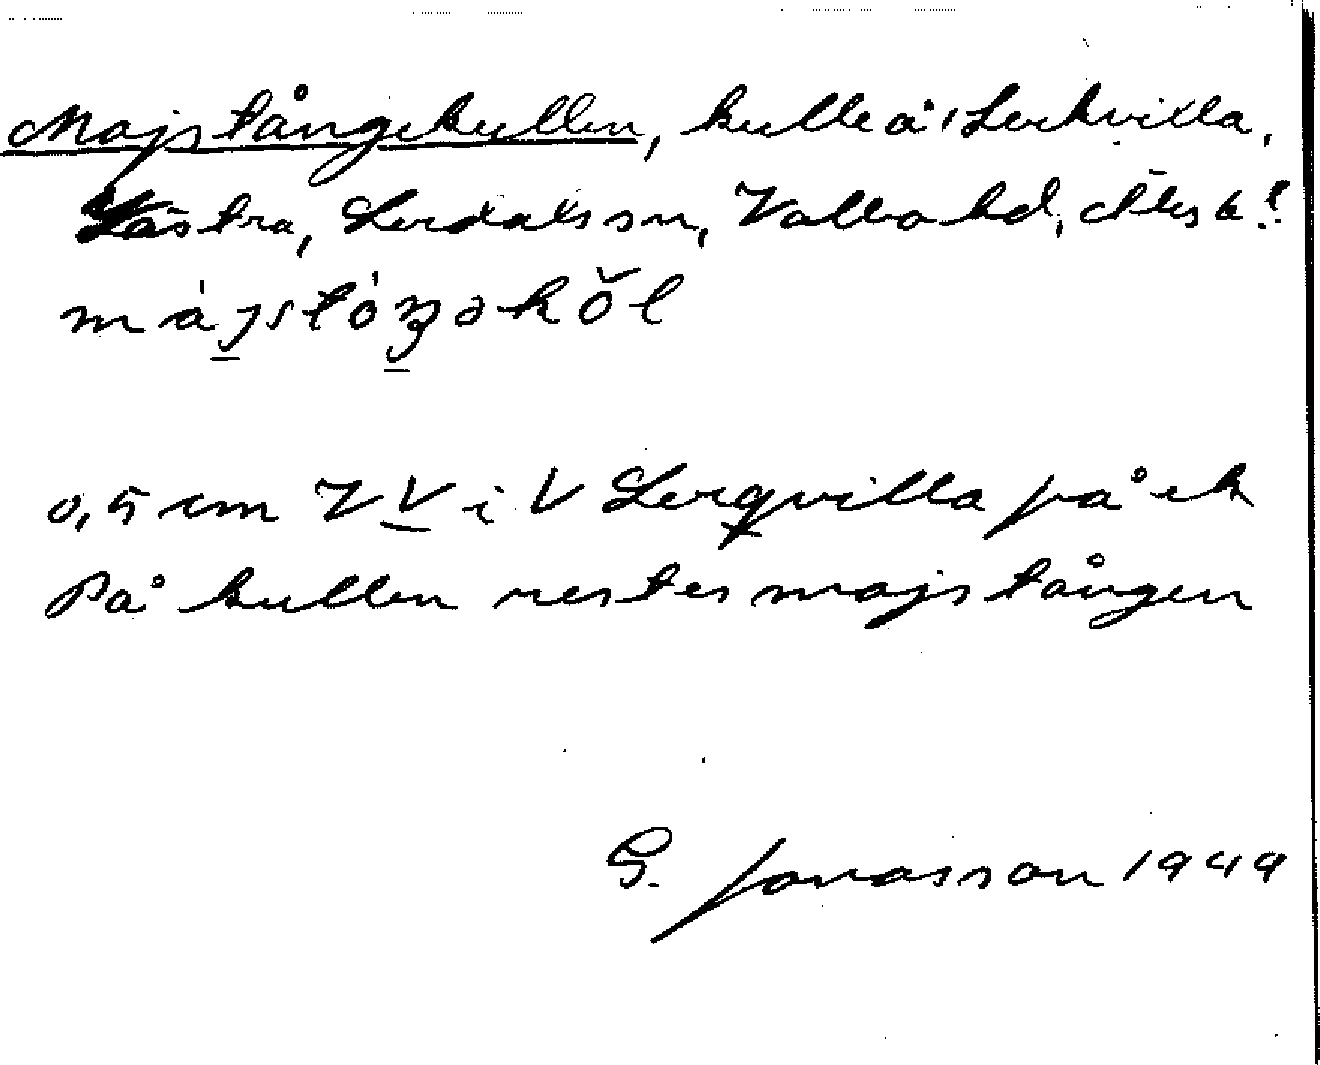 Majstångekullen, kulle å Lerkvilla,
Västra, Lerdals sn, Valbo hd, Älvsb. l.
0,5 cm V V i V Lerqvilla på ek
På kullen restes majstången
G. Jonasson 1949